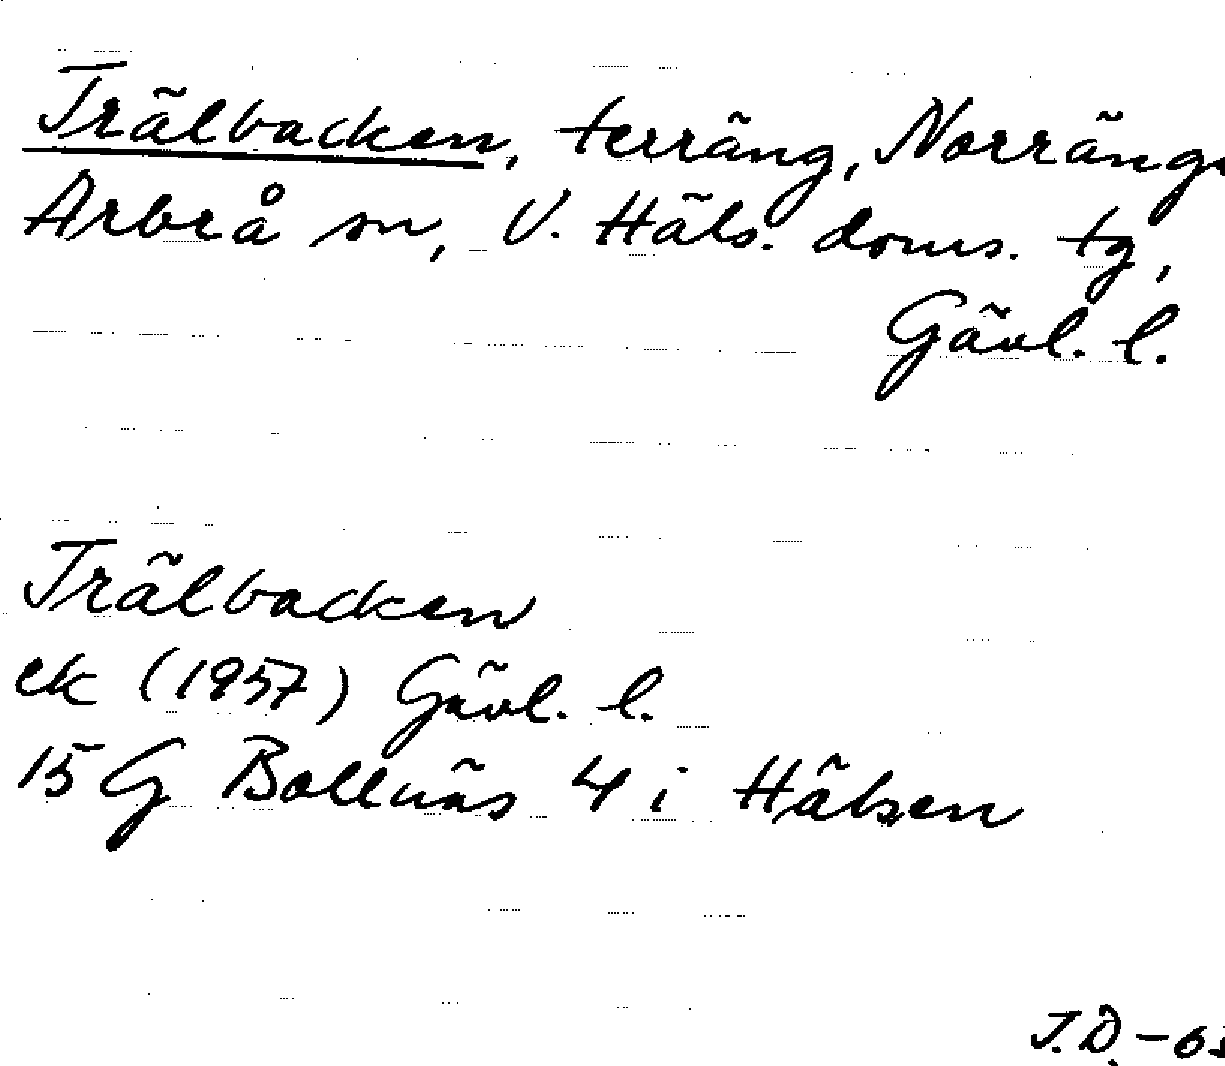 Trälbacken, terräng, Norränge
Arbrå sn, V. Häls. doms. tg,
Gävl. l.
Trälbacken
ek (1957) Gävl. l.
15 G Bollnäs 4 i Hälsen
J.D.